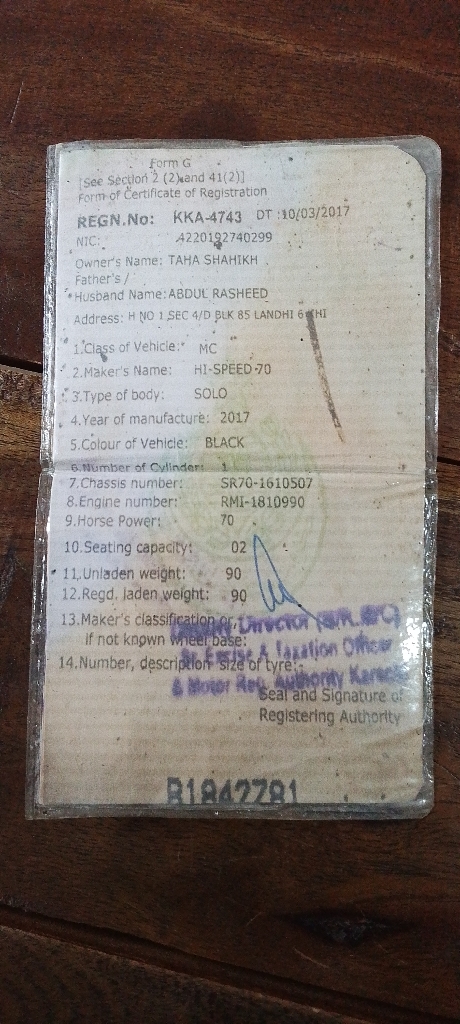 Form G
[See Section 2 (2) and 41(2)]
Form of Certificate of Registration
REGN.No: KKA-4743 DT :10/03/2017
NIC: 4220192740299
Owner's Name: TAHA SHAHIKH
Father's /
Husband Name: ABDUL RASHEED
Address: H NO 1 SEC 4/D BLK 85 LANDHI 6 KHI
1.Class of Vehicle: MC
2.Maker's Name: HI-SPEED-70
3.Type of body: SOLO
4.Year of manufacture: 2017
5.Colour of Vehicle: BLACK
6.Number of Cylinder: 1
7.Chassis number: SR70-1610507
8.Engine number: RMI-1810990
9.Horse Power: 70
10.Seating capacity: 02
11.Unladen weight: 90
12.Regd. laden weight: 90
13.Maker's classification or,
Director
if not known wheel base:
& Taxation Officer
14.Number, description size of tyre:
& Motor Reg. Authority Karachi
Seal and Signature of
Registering Authority
B1842781